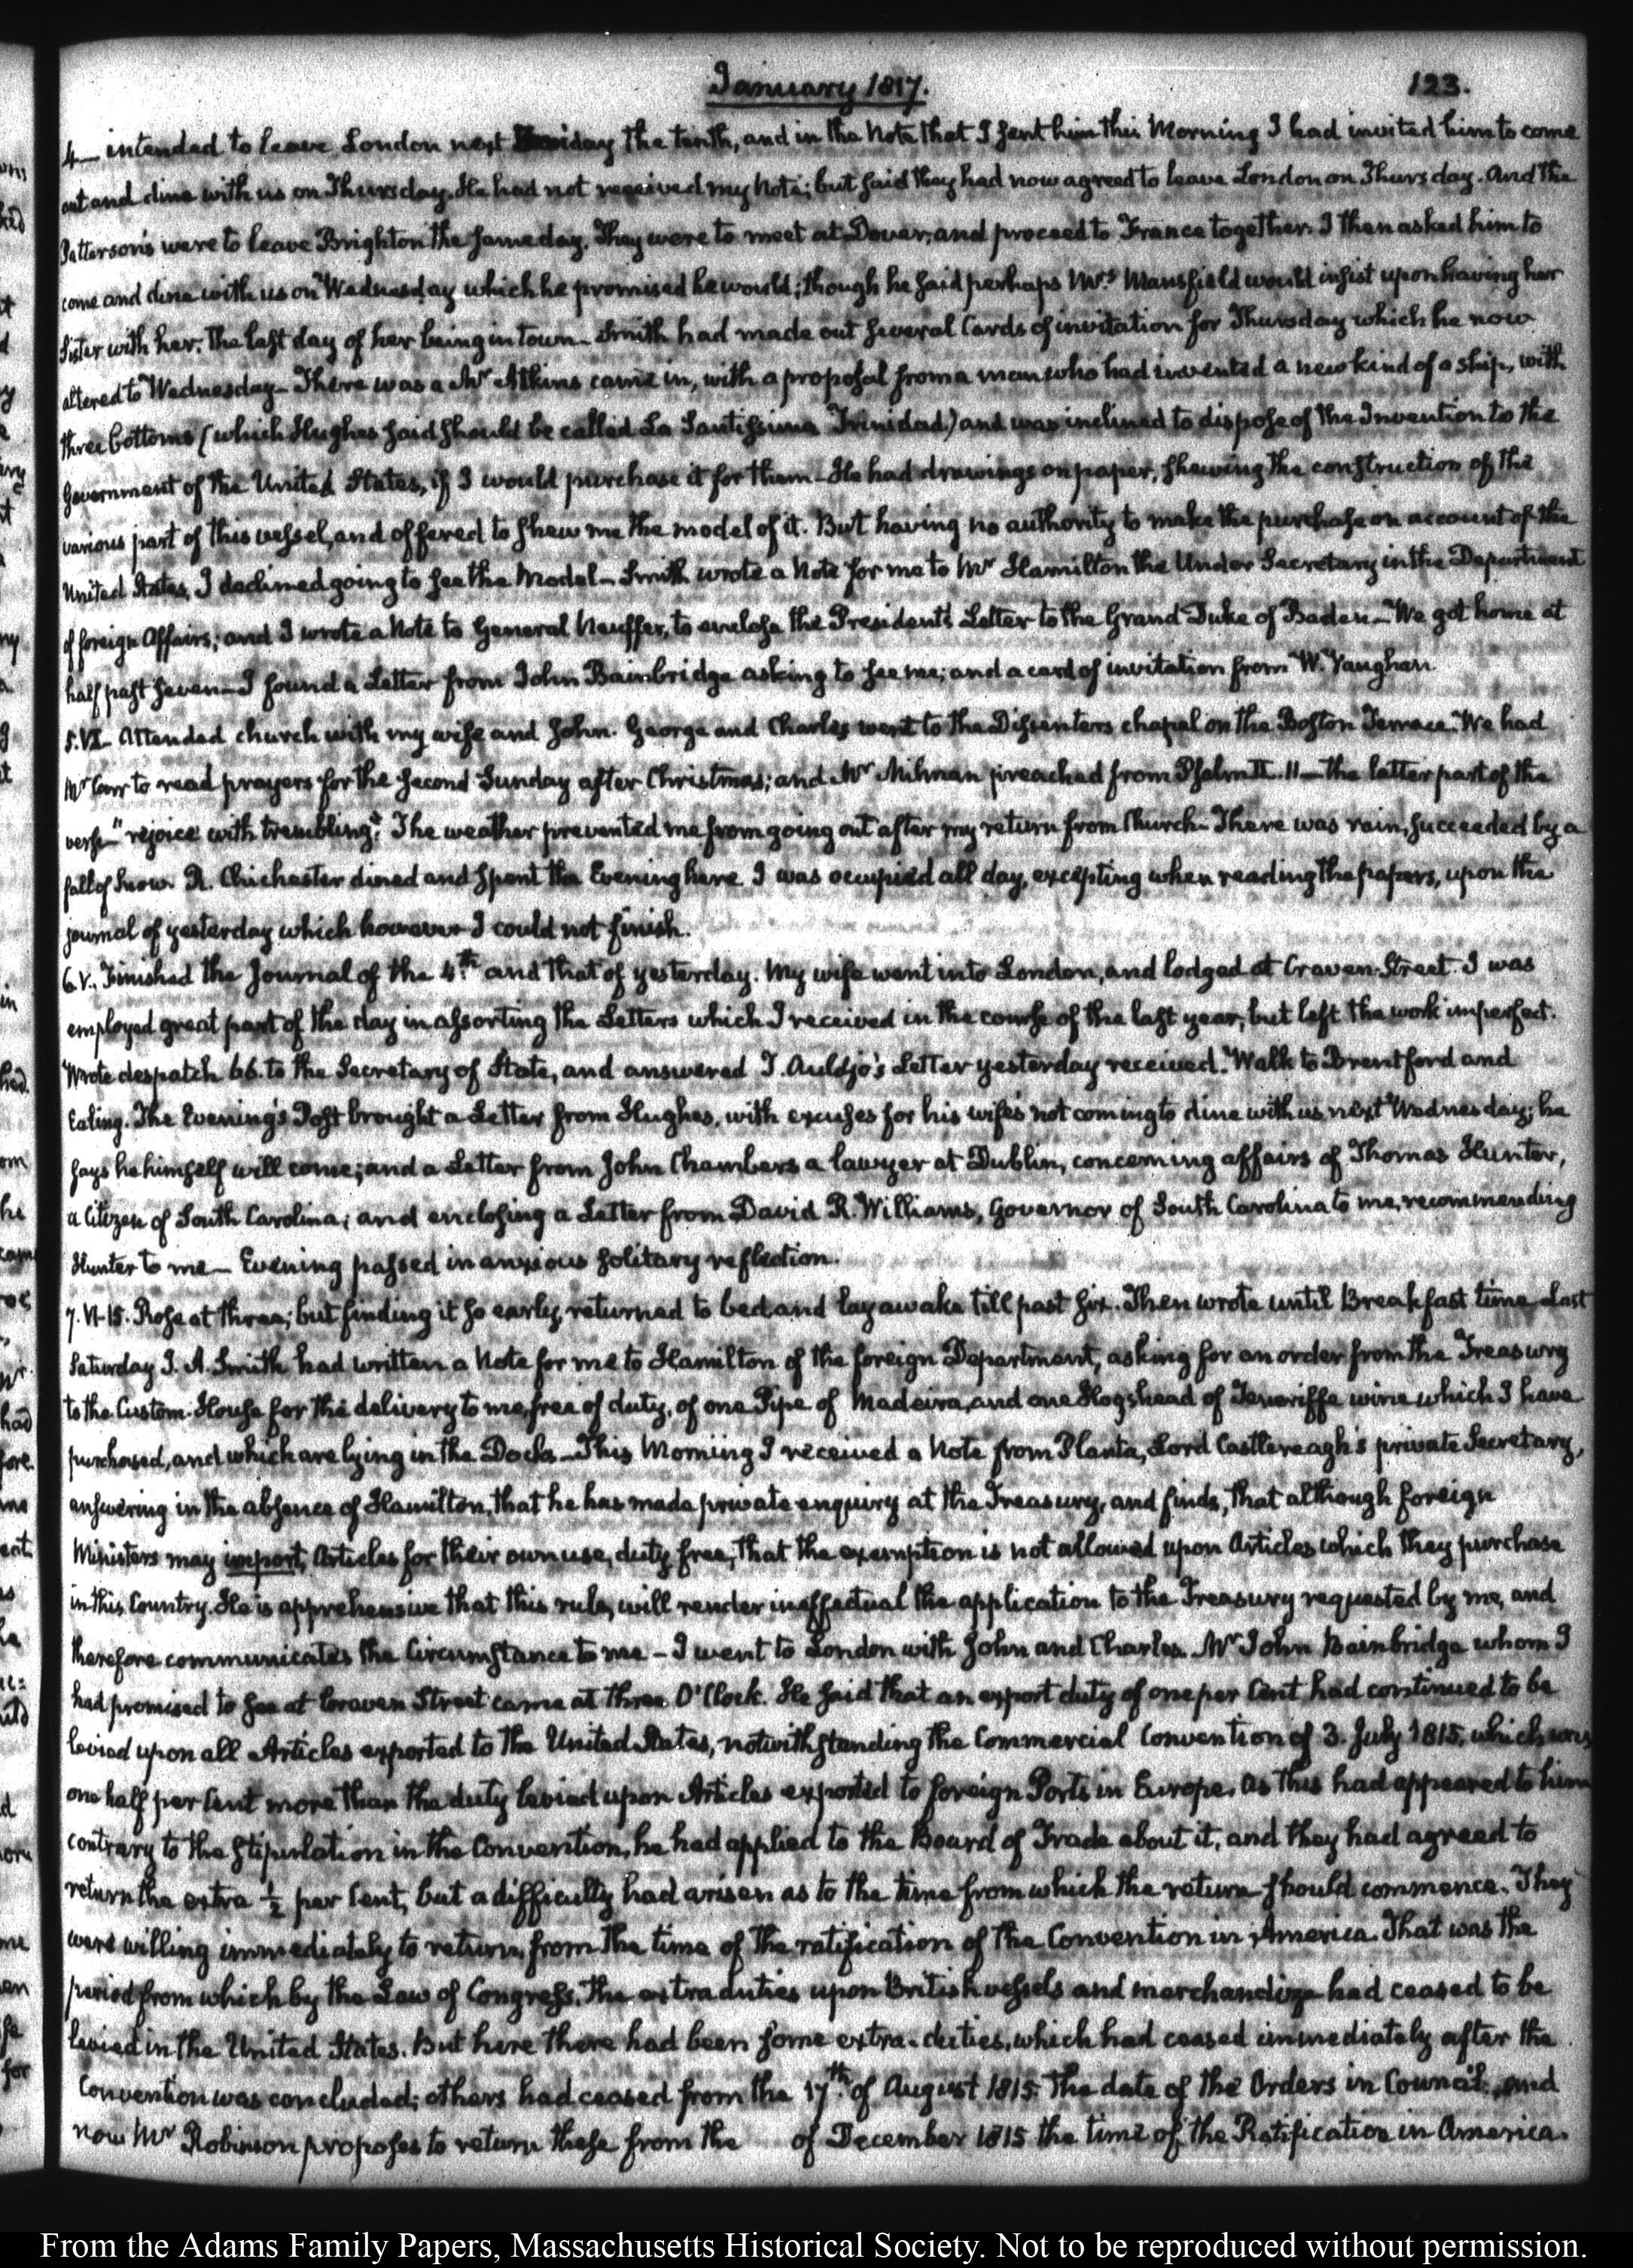 January 1817.
123.
4— intended to leave London next the tenth, and in the Note that I sent him this Morning I had invited him to come
out and dine with us on Thursday. He had not received my Note; but said they had now agreed to leave London on Thursday. And the
Patterson's were to leave Brighton the same day. They were to meet at Dover, and proceed to France together. I then asked him to
come and dine with us on Wednesday which he promised he would; though he said perhaps Mrs Mansfield would insist upon having her
Sister with her. The last day of her being in town— Smith had made out several Cards of invitation for Thursday which he now
altered to Wednesday— There was a Mr Atkins came in, with a proposal from a man who had invented a new kind of a ship, with
three bottoms (which Hughes said should be called La Santissima Trinidad) and was inclined to dispose of the Invention to the
Government of the United States, if I would purchase it for them— He had drawings on paper, shewing the construction of the
various part of this vessel, and offered to shew me the model of it. But having no authority to make the purchase on account of the
United States, I declined going to see the Model— Smith wrote a Note for me to Mr Hamilton the Under Secretary in the Department
of foreign Affairs; and I wrote a Note to General Neuffer, to enclose the President's Letter to the Grand Duke of Baden— We got home at
half past seven— I found a Letter from John Bainbridge asking to see me; and a card of invitation from W. Vaughan.
5. VI— Attended church with my wife and John. George and Charles went to the Dissenters chapel on the Boston Terrace. We had
Mr Carr to read prayers for the second Sunday after Christmas; and Mr Milman preached from Psalm II. 11— the latter part of the
verse— "rejoice with trembling." The weather prevented me from going out after my return from Church— There was rain, succeeded by a
fall of Snow. R. Chichester dined and spent the Evening here. I was occupied all day, excepting when reading the papers, upon the
journal of yesterday which however I could not finish.
6. V. Finished the Journal of the 4th and that of yesterday. My wife went into London, and lodged at Craven-Street. I was
employed great part of the day in assorting the Letters which I received in the course of the last year, but left the work imperfect.
Wrote despatch 66. to the Secretary of State, and answered J. Auldjo's Letter yesterday received. Walk to Brentford and
Ealing. The Evening's Post brought a Letter from Hughes, with excuses for his wife's not coming to dine with us next Wednesday; he
says he himself will come; and a Letter from John Chambers a lawyer at Dublin, concerning affairs of Thomas Hunter,
a Citizen of South Carolina; and enclosing a Letter from David R. Williams, Governor of South Carolina to me, recommending
Hunter to me— Evening passed in anxious solitary reflection.
7. VI-15. Rose at three; but finding it so early, returned to bed and lay awake till past six. Then wrote until Breakfast time— Last
Saturday J. A. Smith had written a Note for me to Hamilton of the foreign Department, asking for an order from the Treasury
to the Custom-House for the delivery to me, free of duty, of one Pipe of Madeira, and one Hogshead of Teneriffe wine which I have
purchased, and which are lying in the Docks— This Morning I received a Note from Planta, Lord Castlereagh's private Secretary,
answering in the absence of Hamilton, that he has made private enquiry at the Treasury, and finds, that although foreign
Ministers may import, Articles for their own use, duty free, that the exemption is not allowed upon Articles which they purchase
in this Country. He is apprehensive that this rule, will render ineffectual the application to the Treasury requested by me, and
therefore communicates the Circumstance to me— I went to London with John and Charles. Mr John Bainbridge whom I
had promised to see at Craven Street came at three O'Clock. He said that an export duty of one per Cent had continued to be
levied upon all Articles exported to the United States, notwithstanding the Commercial Convention of 3. July 1815. which was
one half per Cent more than the duty levied upon Articles exported to foreign Ports in Europe. As this had appeared to him
contrary to the stipulation in the Convention, he had applied to the Board of Trade about it, and they had agreed to
return the extra ½ per Cent, but a difficulty had arisen as to the time from which the return should commence. They
were willing immediately to return, from the time of the ratification of the Convention in America. That was the
period from which by the Law of Congress, the extra duties upon British vessels and merchandize had ceased to be
levied in the United States. But here there had been some extra-duties, which had ceased immediately after the
Convention was concluded; others had ceased from the 17th of August 1815. The date of the Orders in Council, and
now Mr Robinson proposes to return these from the of December 1815 the time of the Ratification in America.
From the Adams Family Papers, Massachusetts Historical Society. Not to be reproduced without permission.